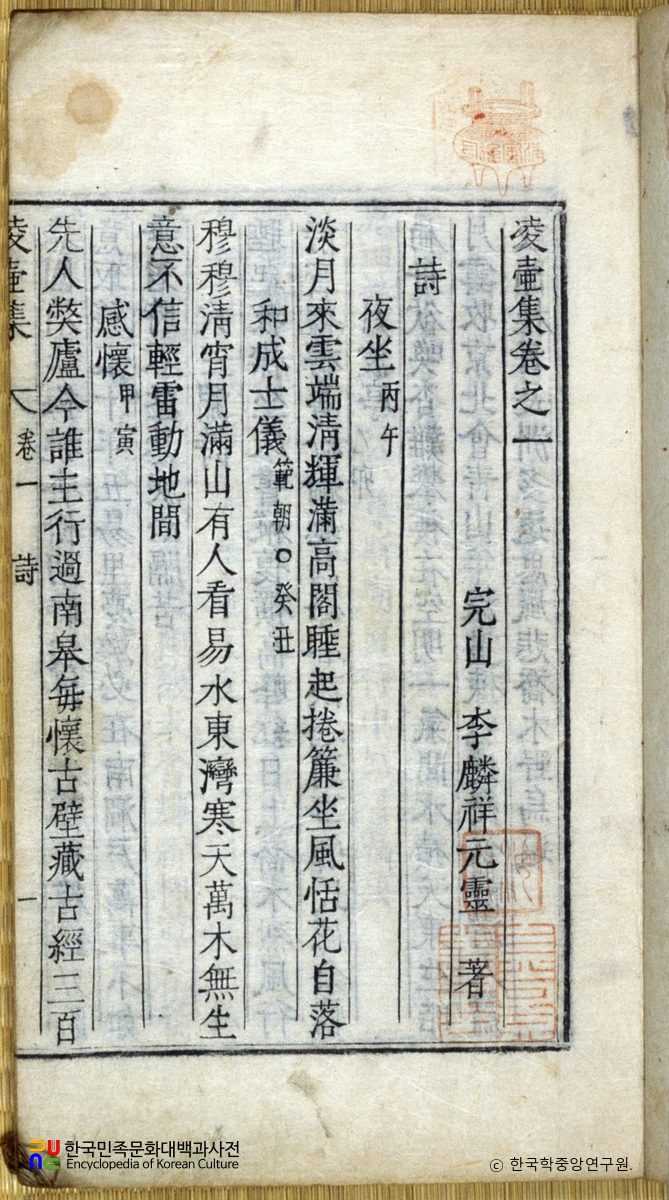 凌壺集卷之一
完山 李麟祥元靈 著
詩
夜坐 丙午
淡月來雲端清輝滿高閣睡起捲簾坐風恬花自落
和成士儀 範朝○癸丑
穆穆清宵月滿山有人看易水東灣寒天萬木無生
意不信輕雷動地間
感懷 甲寅
先人獘廬今誰主行過南皋每懷古壁藏古經三百
凌壺集 卷一 詩 一
한국민족문화대백과사전
Encyclopedia of Korean Culture
© 한국학중앙연구원.